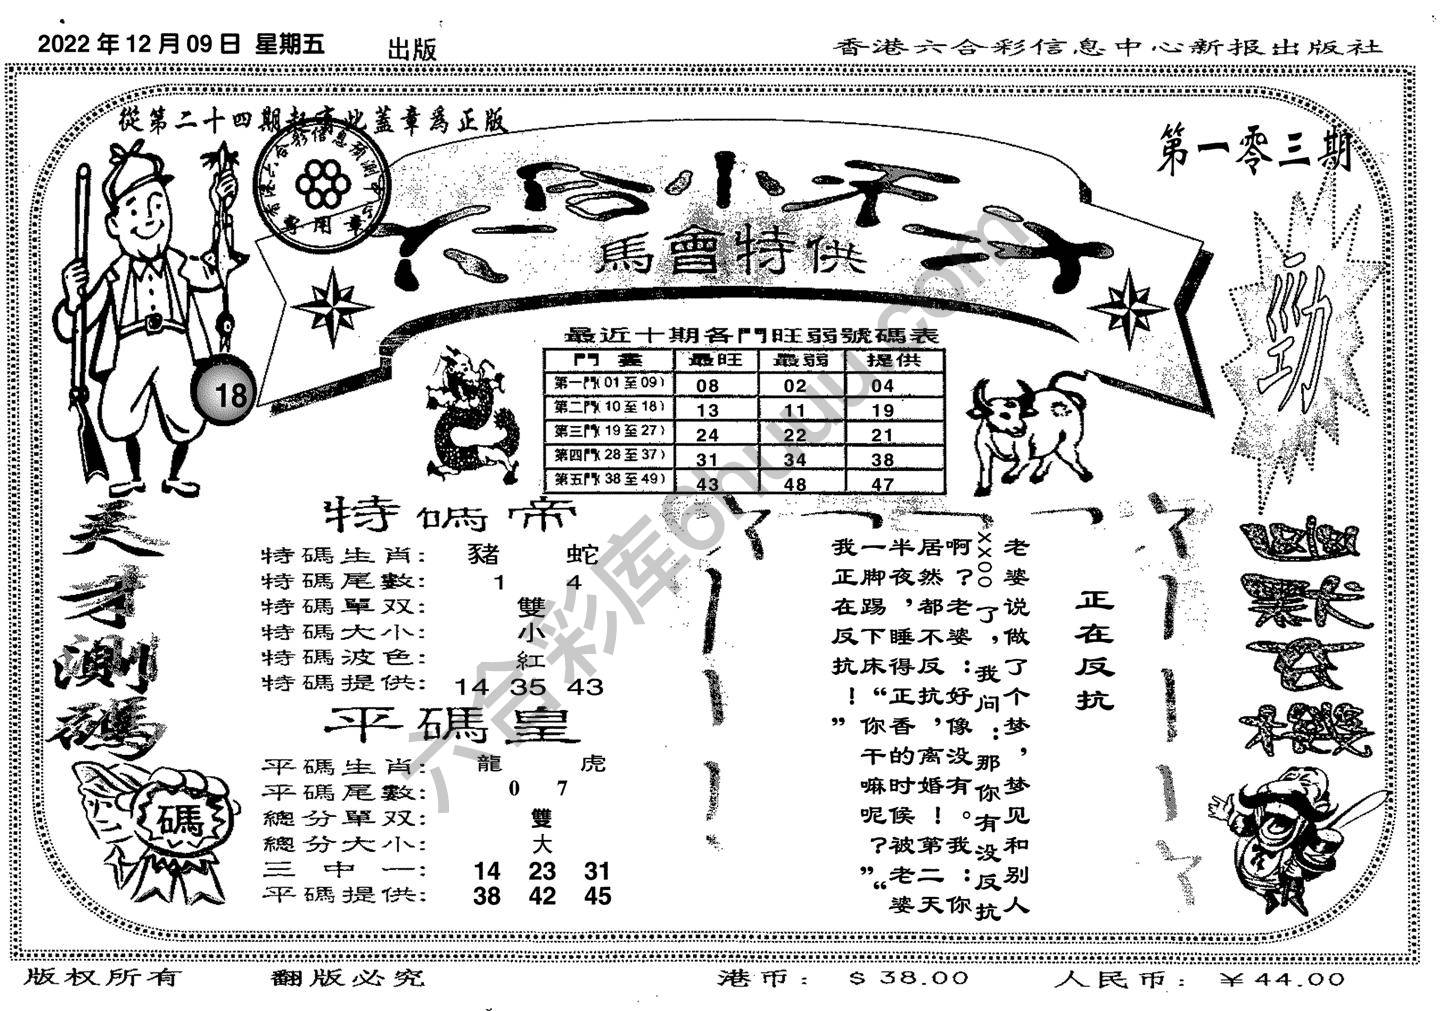 2022年12月09日 星期五 出版
香港六合彩信息中心新报出版社
從第二十四期起有此蓋章爲正版
第一零三期
專用章
馬會特供
劲
18
最近十期各門旺弱號碼表
最旺 最弱 提供
第一門(01至09) 08 02 04
第二門(10至18) 13 11 19
第三門(19至27) 24 22 21
第四門(28至37) 31 34 38
第五門(38至49) 43 48 47
天才測碼
碼
特碼帝
特碼生肖: 豬 蛇
特碼尾數: 1 4
特碼單双: 雙
特碼大小: 小
特碼波色: 紅
特碼提供: 14 35 43
平碼皇
平碼生肖: 龍 虎
平碼尾數: 0 7
總分單双: 雙
總分大小: 大
三中一: 14 23 31
平碼提供: 38 42 45
正在反抗
老婆说做了个梦,梦见和别人
xxoo了,我问:那你有没反抗
啊?老婆:好像没有。我:你
居然都不反抗,离婚!第二天
半夜,睡得正香的时候被老婆
一脚踢下床“你干嘛呢?“
我正在反抗!””
版权所有 翻版必究 港币: $38.00 人民币: ¥44.00
六合彩库6huuu.com